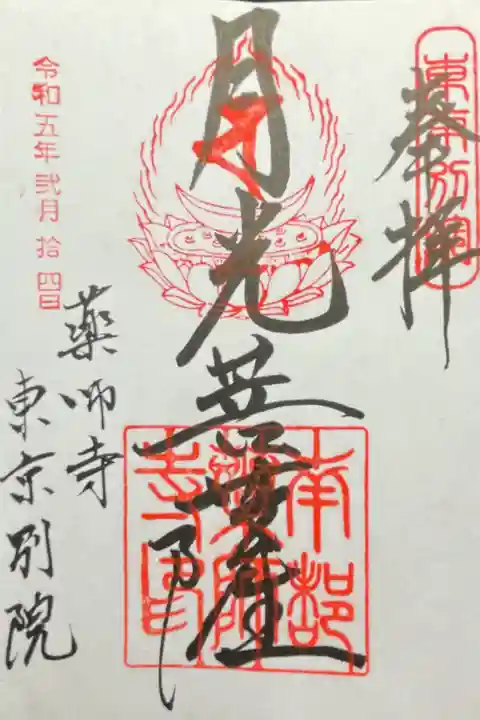 東京別院
奉拝
月光菩薩
南都
薬師
寺印
令和五年弐月拾四日
薬師寺
東京別院